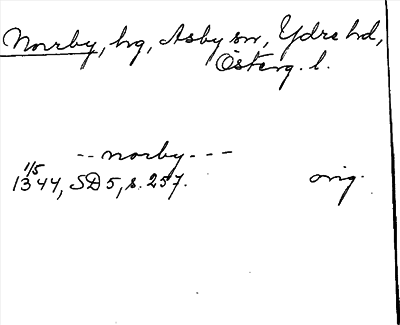 Norrby, hg, Asby sn, Ydre hd,
Österg. l.
-- norby ---
1/5
1344, SD 5, s. 257. orig.